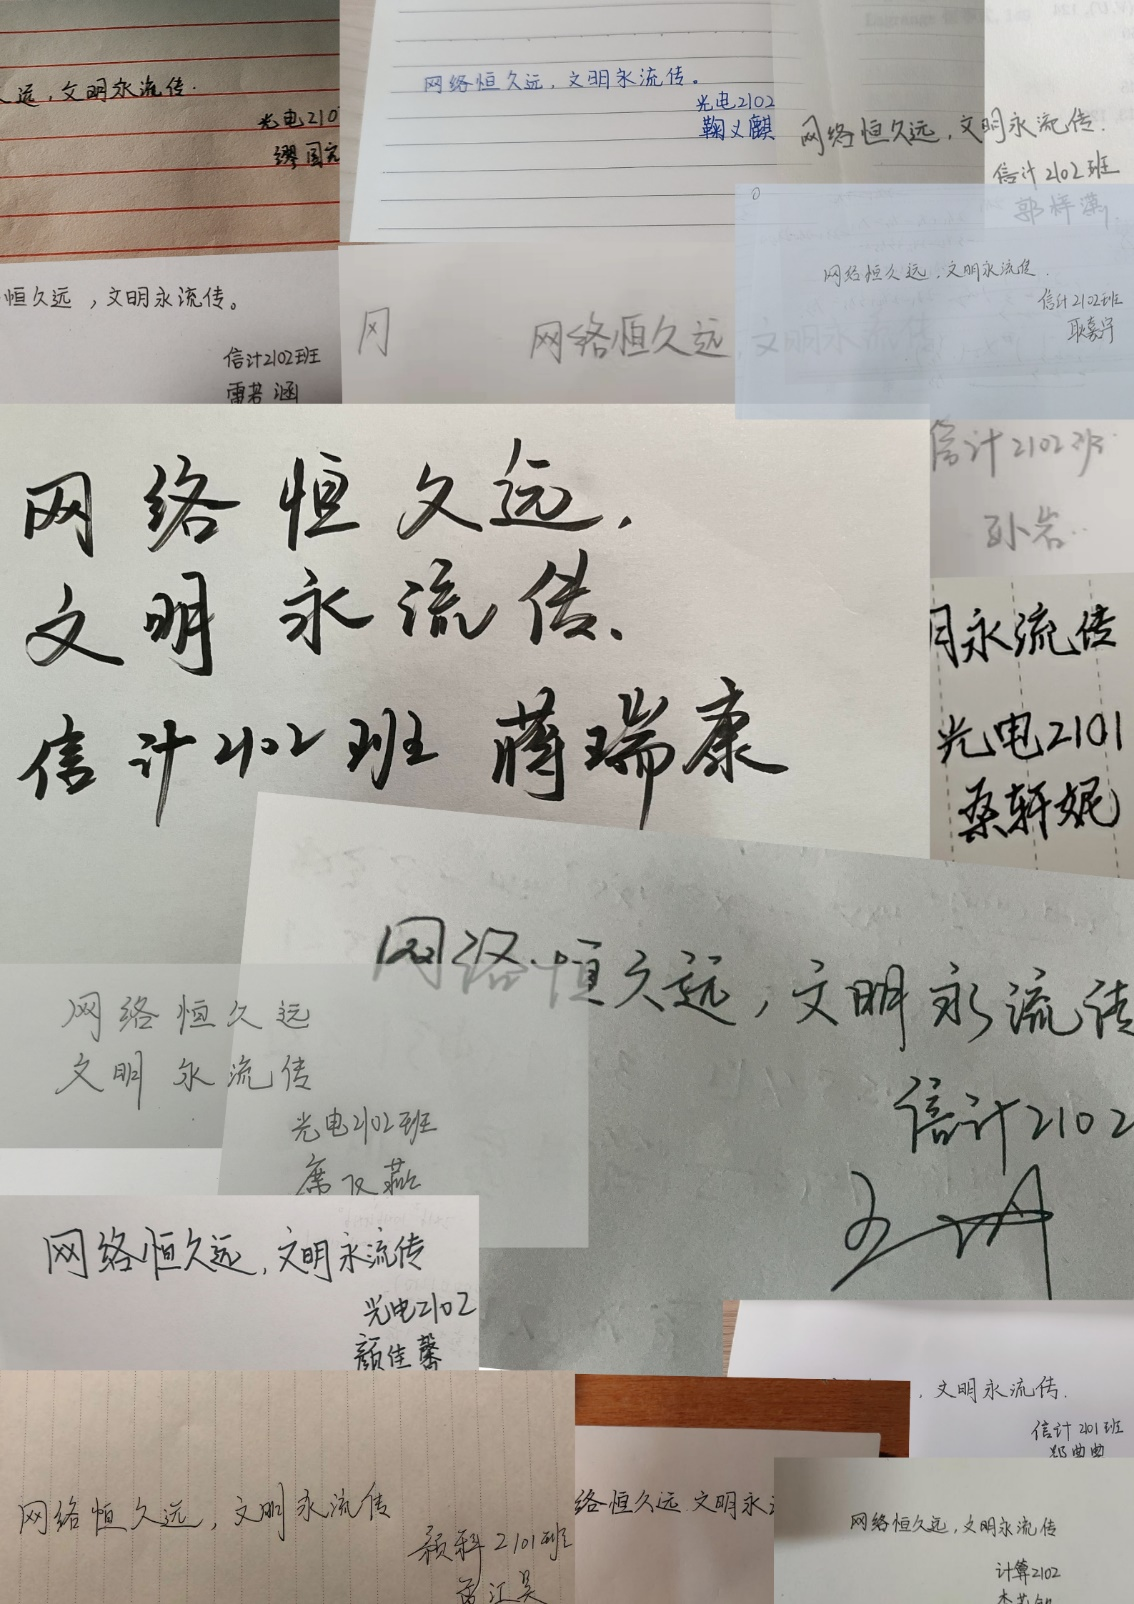 远，文明永流传.
光电210
缪国
网络恒久远，文明永流传。
光电2102
鞠义麒
网络恒久远，文明永流传.
信计2102班
郭梓
网络恒久远，文明永流传.
信计2102班
耿嘉宇
恒久远，文明永流传。
信计2102班
雷若涵
网
网络恒久远，文明永流传
信计2102班.
孙岩..
网络恒久远,
文明永流传、
信计2102班 蒋瑞康
月永流传
光电2101
桑轩妮
网络恒久远，文明永流传
信计2102
网络恒久远
文明永流传
光电2102班
席又燕
网络恒久远，文明永流传
光电2102
颜佳馨
，文明永流传.
信计2101班
郑曲曲
网络恒久远，文明永流传
2101班
江昊
络恒久远 文明永
网络恒久远，文明永流传
计算2102